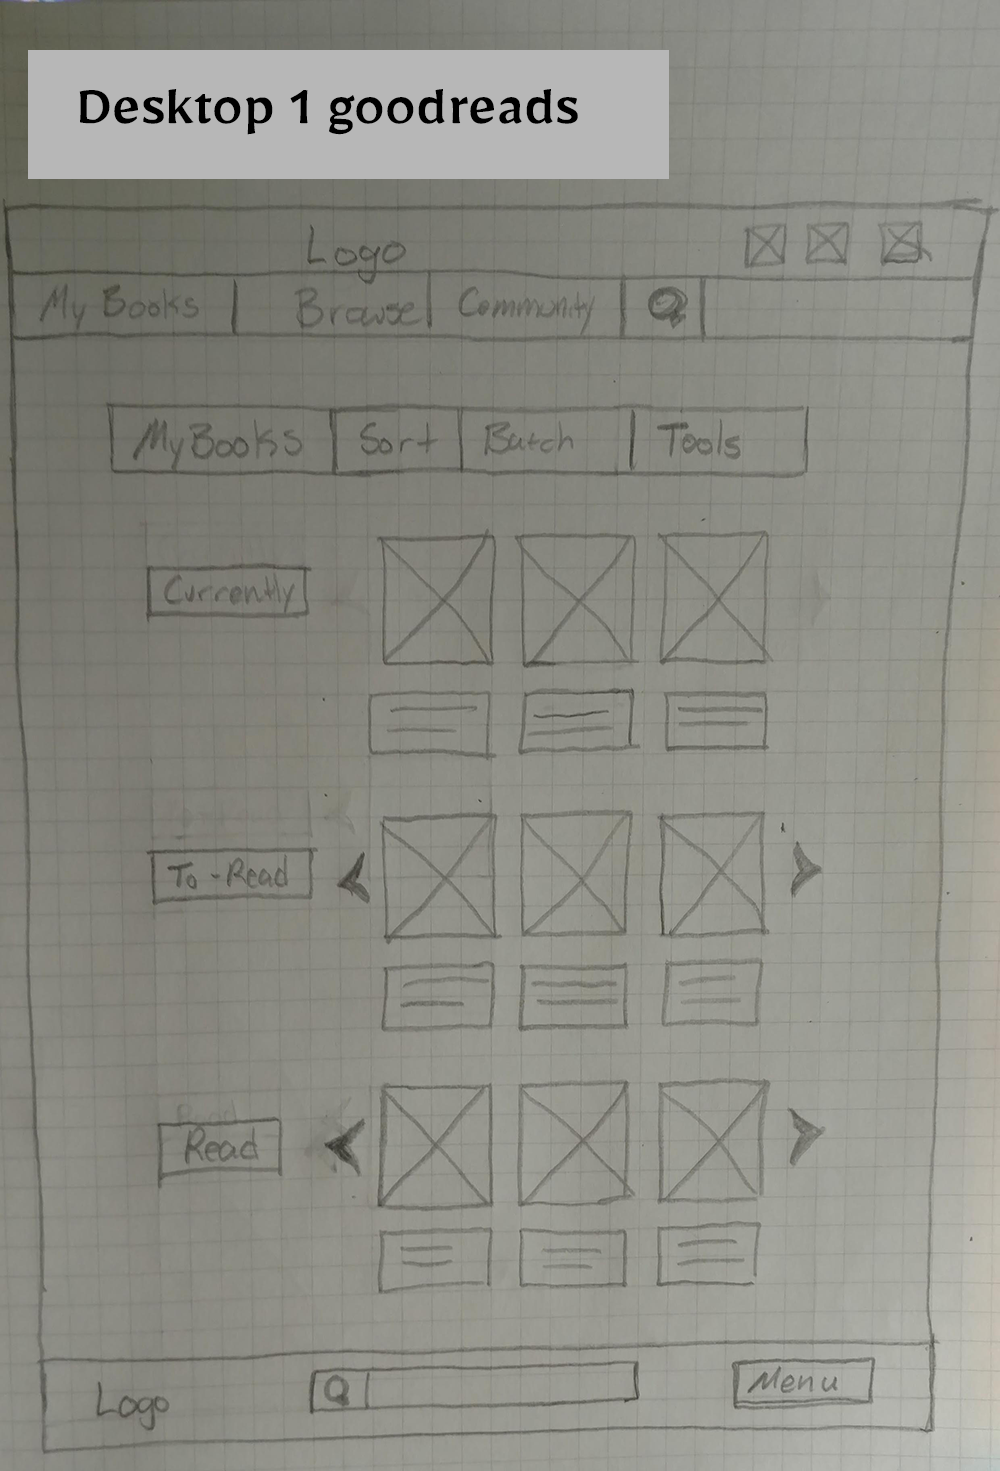 Desktop 1 goodreads
Logo
My Books Browse Community
My Books Sort Batch Tools
Currently
To-Read
Read
Logo Menu